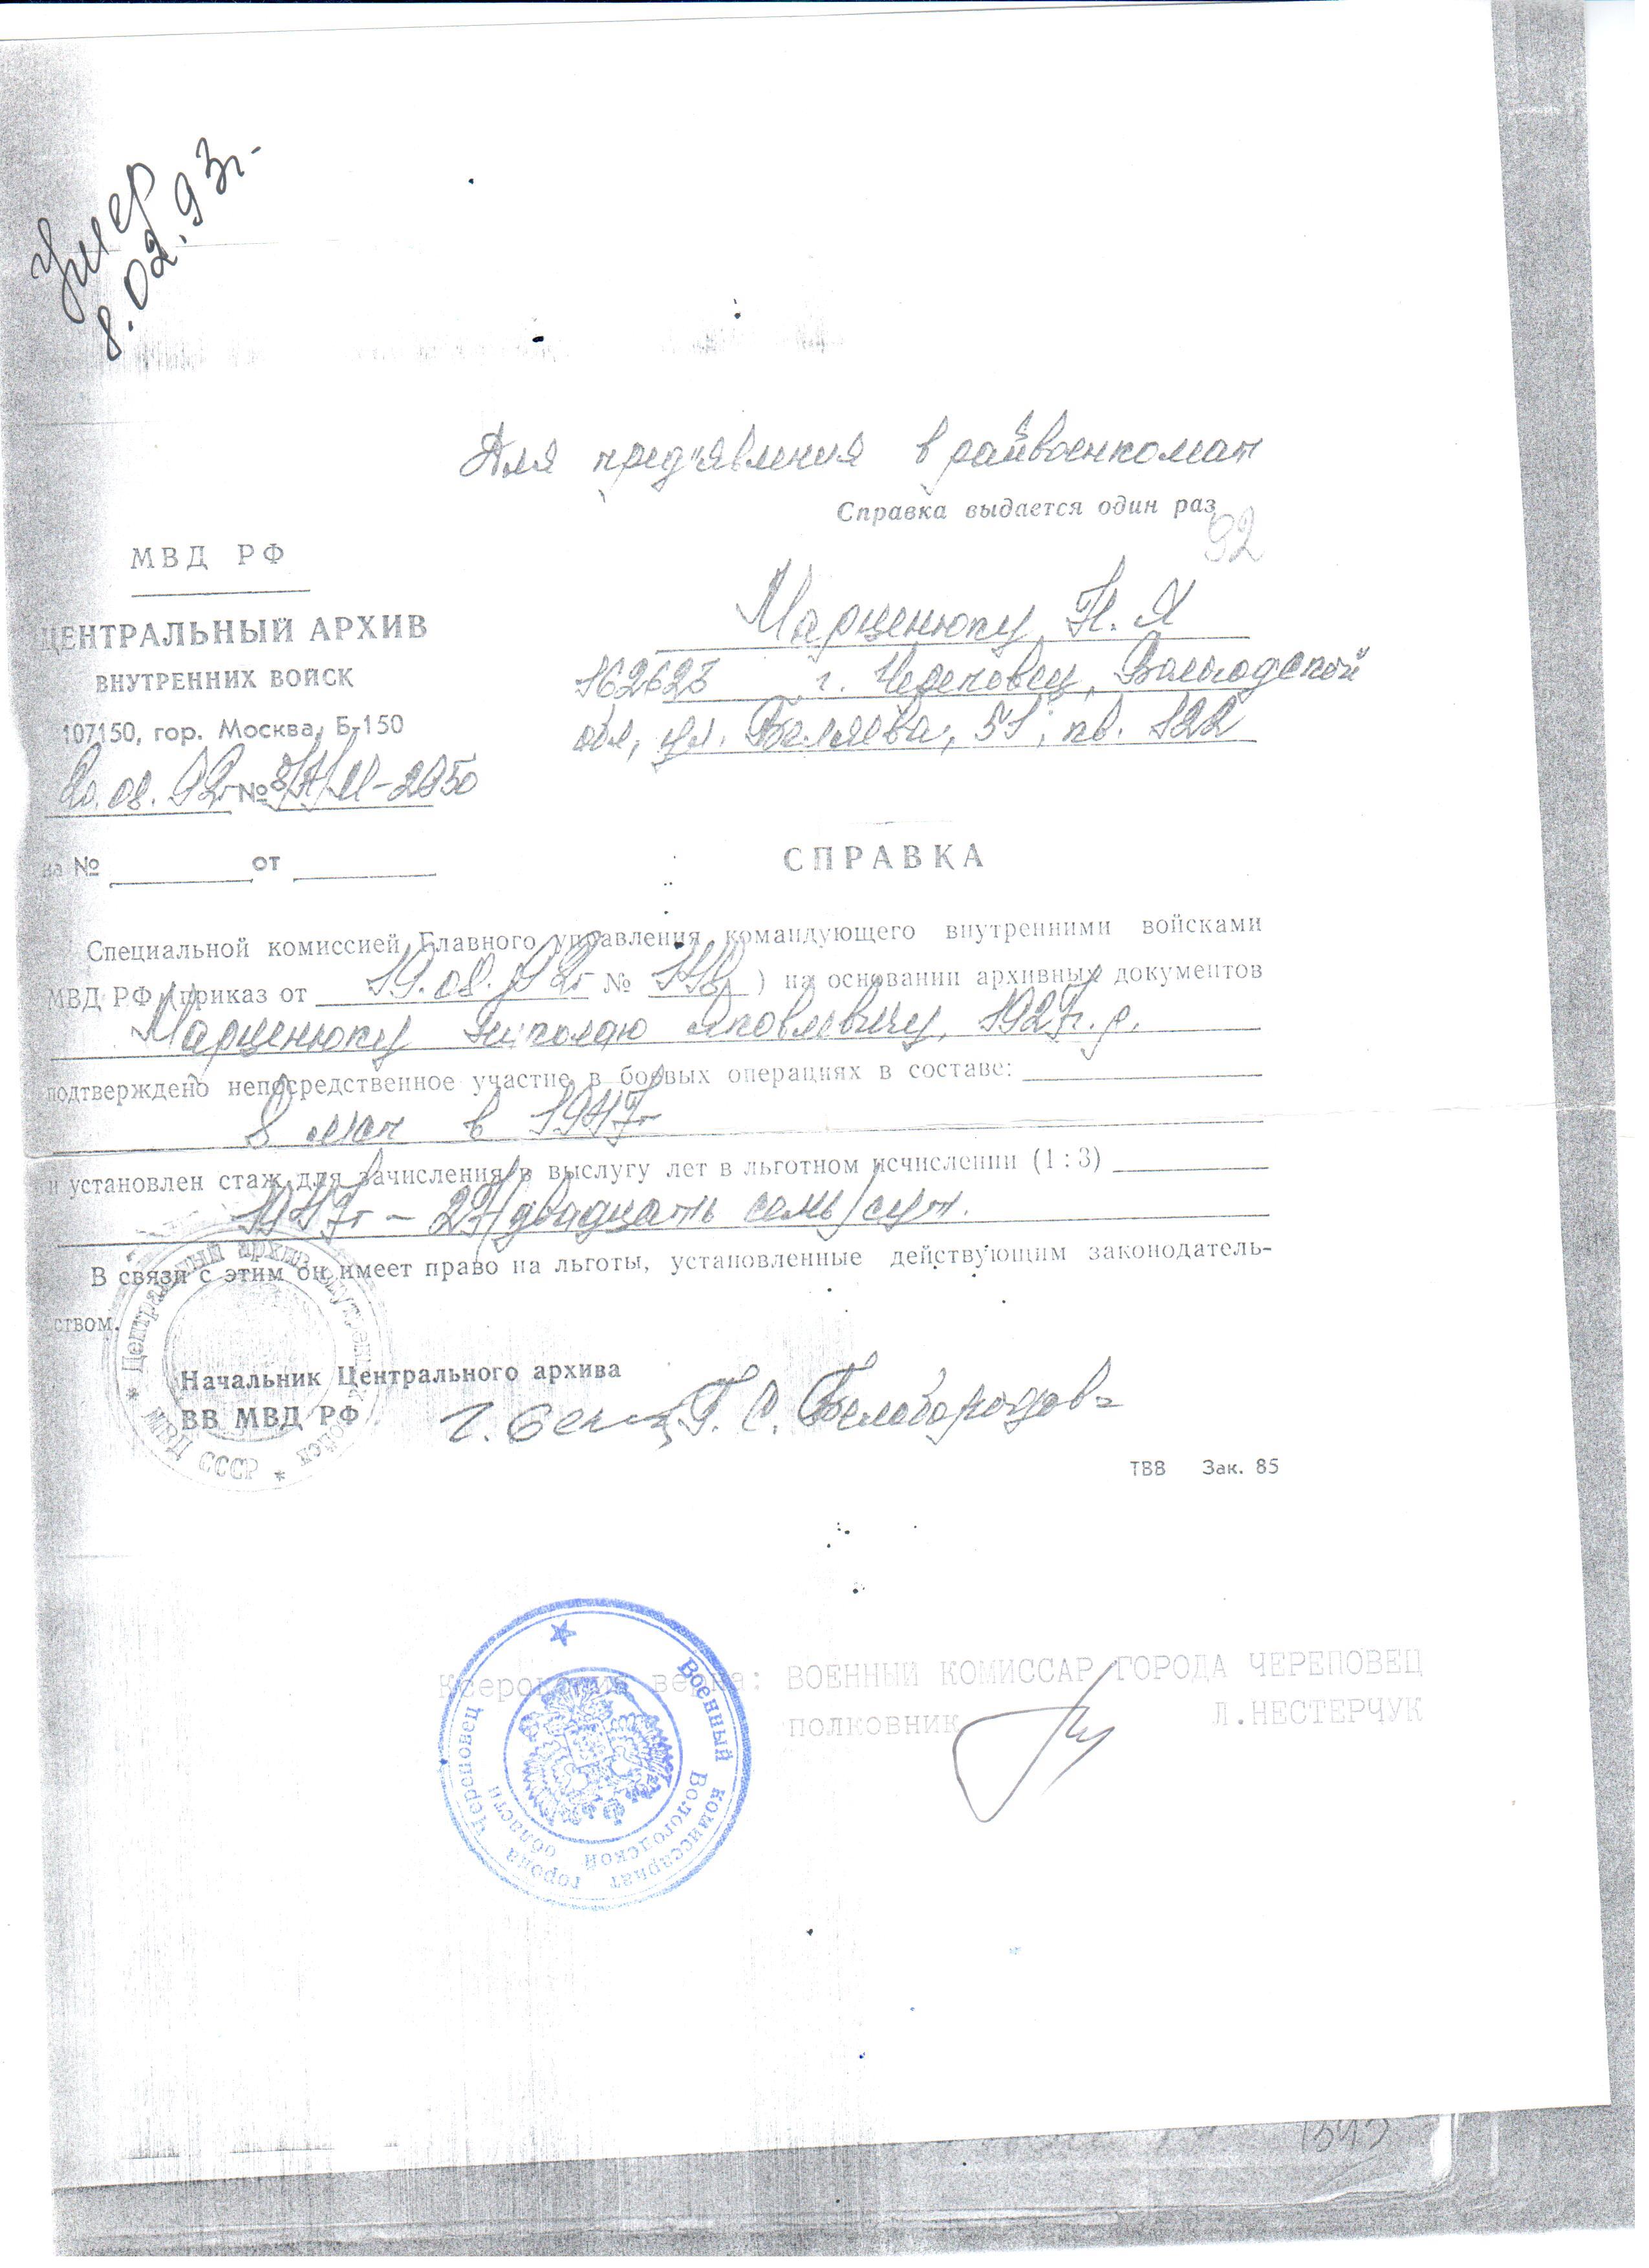 Умер
8.02.93г.
Для предъявления в райвоенкомат
Справка выдается один раз
92
МВД РФ
ЦЕНТРАЛЬНЫЙ АРХИВ
ВНУТРЕННИХ ВОЙСК
107150, гор. Москва, Б-150
20.08.92г №
на № от
Марценюку Н. Я
162623 г. Череповец, Вологодской
обл, ул. Беляева, 51, кв. 122
СПРАВКА
Специальной комиссией Главного управления командующего внутренними войсками
МВД РФ (приказ от 19.08.92г № ) на основании архивных документов
Марценюку Николаю Яковлевичу, 1927г.р.
подтверждено непосредственное участие в боевых операциях в составе:
8 мсп в 1947г
и установлен стаж для зачисления в выслугу лет в льготном исчислении (1:3)
1947г - 27/двадцать семь/сут.
В связи с этим он имеет право на льготы, установленные действующим законодатель-
ством.
Начальник Центрального архива
ВВ МВД РФ Г. С. Белобородов
* Центральный архив внутренних войск * МВД СССР
ТВВ Зак. 85
Ксерокопия верна: ВОЕННЫЙ КОМИССАР ГОРОДА ЧЕРЕПОВЕЦ
ПОЛКОВНИК Л.НЕСТЕРЧУК
Военный комиссариат города Череповец
Вологодской области